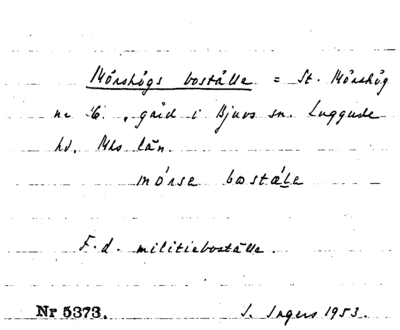 Mörshögs boställe = St. Mörshög
nr 6, gård i Bjuvs sn. Luggude
hd. Mhs län.
mórse bostäle
F.d. militieboställe.
Nr 5373. I. Ingers 1953.